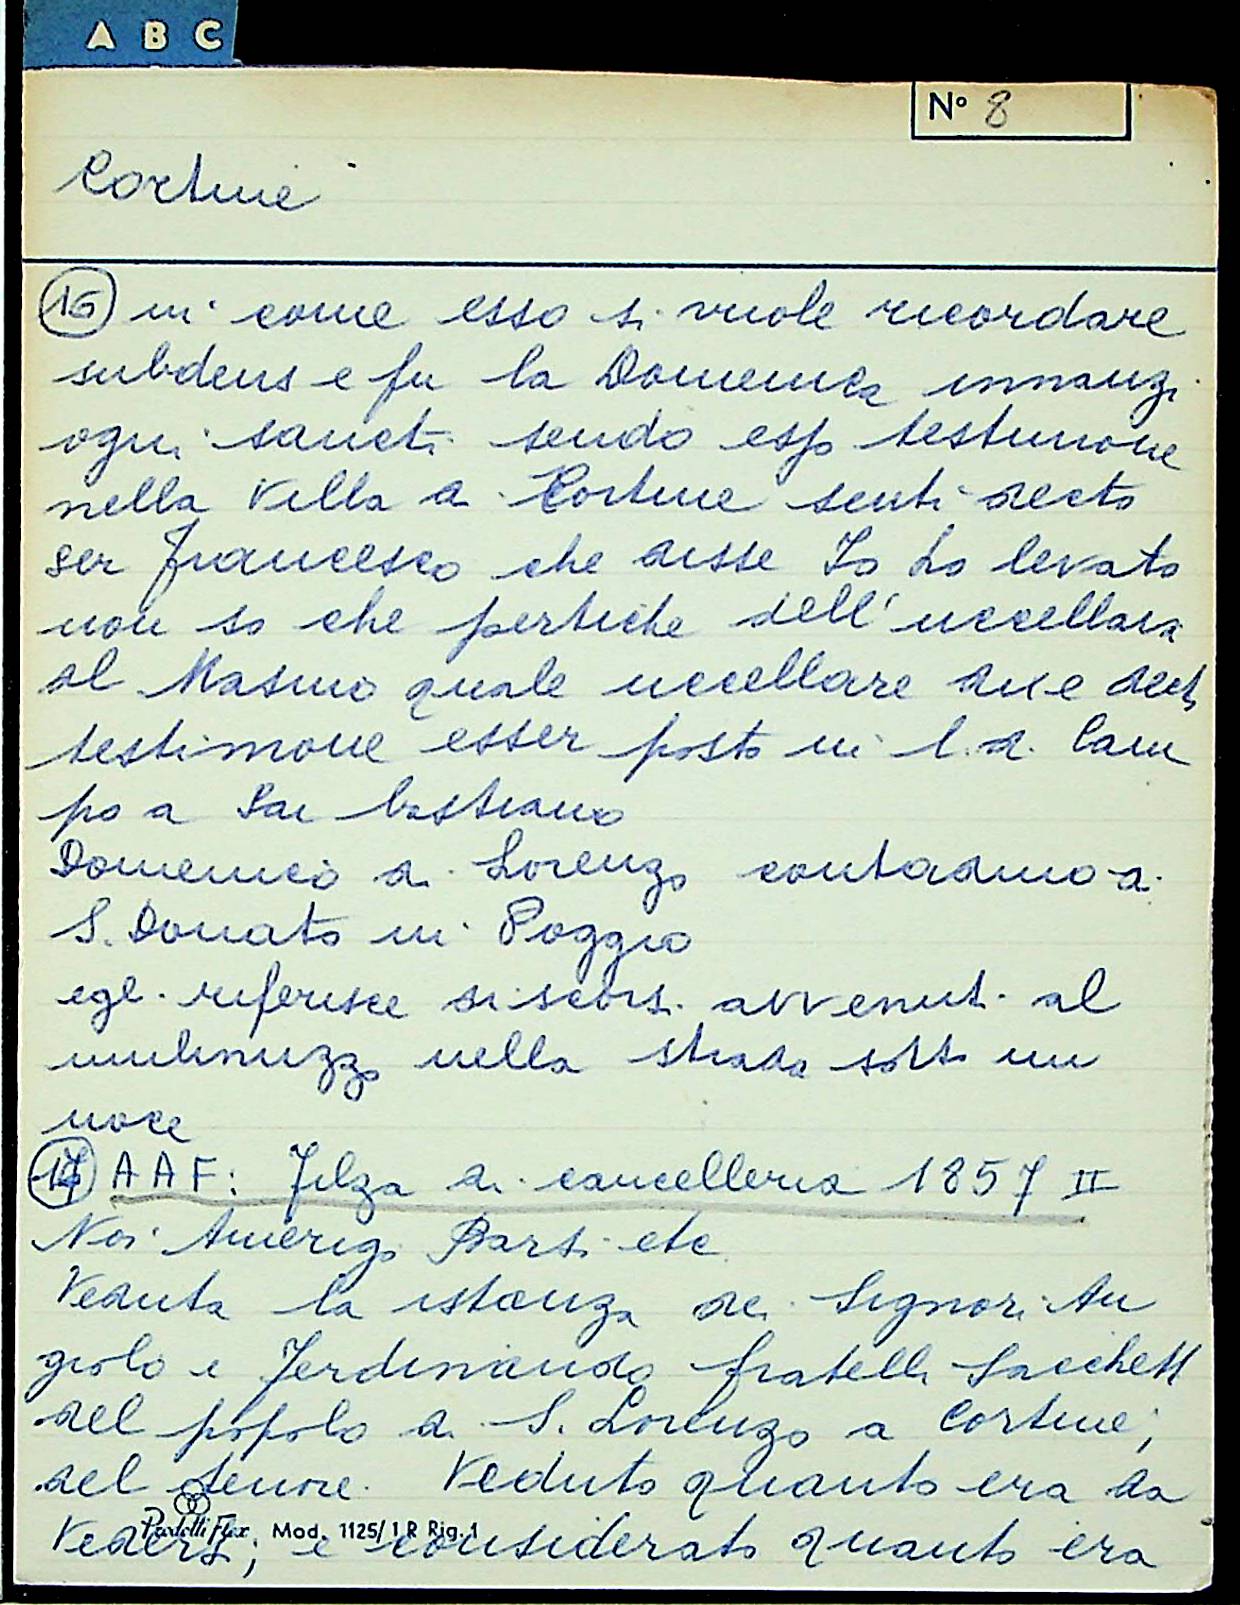 A B C
N° 8
Cortine
16 in come esso si vuole ricordare
subdens e fu la Domenica innanzi
ogni sancti sendo esso testimone
nella Villa di Cortine senti decto
ser Francesco che disse Io ho levato
non so che pertiche dell'uccellaia
al Masino quale uccellare dice dect
testimone esser posto in l. d. Cam
po a San bastiano
Domenico di Lorenzo contadino a
S. Donato in Poggio
egli riferisce di scorsi avvenuti al
mulinuzzo nella strada sotto un
noce
17 AAF: Filza di cancelleria 1857 II
Noi Amerigo Barsi etc
Veduta la istanza dei Signori An
giolo e Ferdinando fratelli Sacchetti
del popolo di S. Lorenzo a Cortine;
del tenore. Veduto quanto era da
vedersi; e considerato quanto era
Mod. 1125/1R Rig. 1